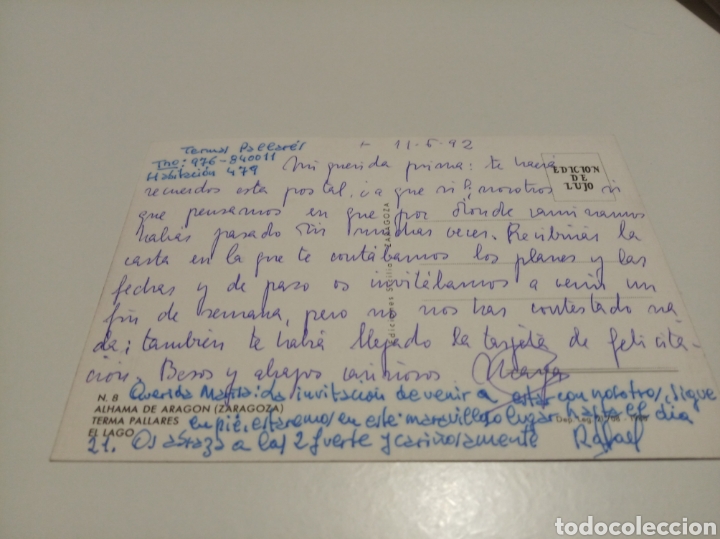 Termas Pallarés
Tno: 976-840011
Habitación 479
11-5-92
EDICION
DE
LUJO
Mi querida prima: te hará
recuerdos esta postal. ¿a que si? nosotros si
que pensamos en que por donde caminamos
habás pasado tus muchas veces. Recibirias la
carta en la que te contábamos los planes y las
fechas y de paso os invitábamos a venir un
fin de semana, pero no nos has contestado na
da; también te habrá llegado la tarjeta de felicita
ción. Besos y abrazos cariñosos
ZARAGOZA
N. 8
ALHAMA DE ARAGON (ZARAGOZA)
TERMA PALLARES
EL LAGO
Querida la invitación de venir a estar con nosotros, sigue
en pié, estaremos en este maravilloso lugar hasta el día
21. Os abraza a las 2 fuerte y cariñosamente Rafael
todocoleccion